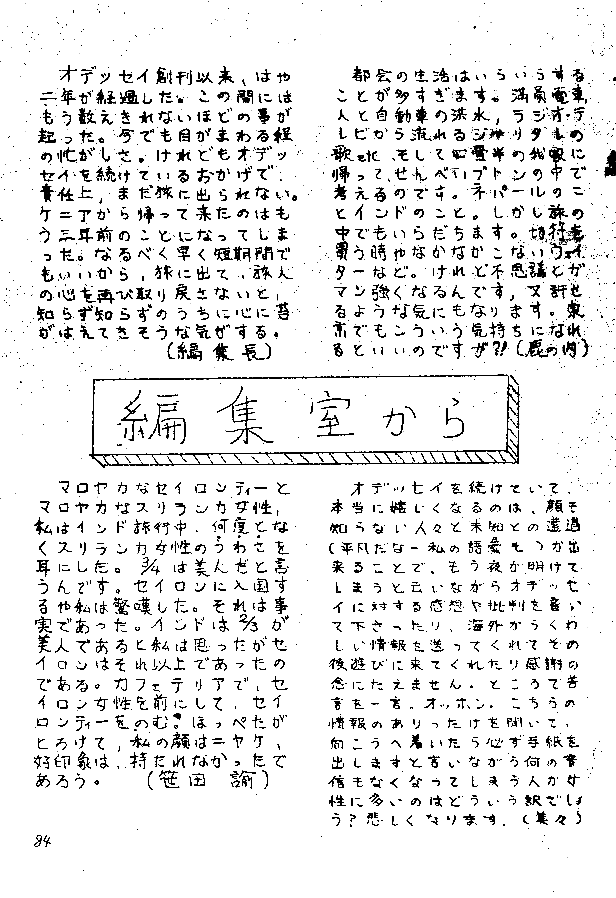 オデッセイ創刊以来、はや
二年が経過した。この間には
もう数えきれないほどの事が
起った。今でも目がまわる程
の忙がしさ。けれどもオデッ
セイを続けているおかげで、
責任上、まだ旅に出られない。
ケニアから帰って来たのはも
う三年前のことになってしま
った。なるべく早く短期間で
もいいから、旅に出て、旅人
の心を再び取り戻さないと、
知らず知らずのうちに心に苔
がはえてきそうな気がする。
(編集長)
都会の生活はいらいらする
ことが多すぎます。満員電車、
人と自動車の洪水、ラジオ・テ
レビから流れるジャリタレの
歌 そして四畳半の我家に
帰って、せんべいブトンの中で
考えるのです。ネパールのこ
とインドのこと。しかし旅の
中でもいらだちます。切符を
買う時やなかなかこないウェイ
ターなど。けれど不思議とガ
マン強くなるんです、又許せ
るような気にもなります。東
京でもこういう気持ちになれ
るといいのですが?!(鹿の内)
編集室から
マロヤカなセイロンティーと
マロヤカなスリランカ女性、
私はインド旅行中、何度とな
くスリランカ女性のうわさを
耳にした。3/4は美人だと言
うんです。セイロンに入国す
るや私は驚嘆した。それは事
実であった。インドは2/3が
美人であると私は思ったがセ
イロンはそれ以上であったの
である。カフェテリアで、セ
イロン女性を前にして、セイ
ロンティーをのむ。ほっぺたが
とろけて、私の顔はニヤケ、
好印象は、持たれなかったで
あろう。 (笹田 諭)
オデッセイを続けていて、
本当に嬉しくなるのは、顔も
知らない人々と未知との遭遇
(平凡だなー私の語彙も)が出
来ることで、もう夜が明けて
しまうと云いながらオデッセ
イに対する感想や批判を書い
て下さったり、海外からくわ
しい情報を送ってくれてその
後遊びに来てくれたり感謝の
念にたえません。ところで苦
言を一言。オッホン。こちらの
情報のありったけを聞いて、
向こうへ着いたら必ず手紙を
出しますと言いながら何の音
信もなくなってしまう人が女
性に多いのはどういう訳でしょ
う?悲しくなります。(美々)
84